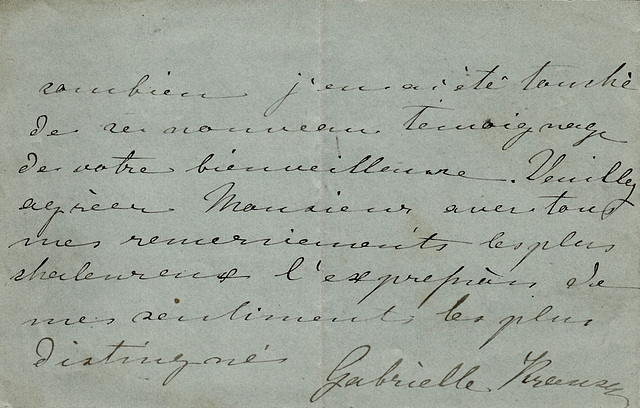 combien j'en ai été touché
de ce nouveau témoignage
de votre bienveillance. Veuillez
agréer Monsieur avec tous
mes remerciements les plus
chaleureux l'expression de
mes sentiments les plus
distingués
Gabrielle Krauss